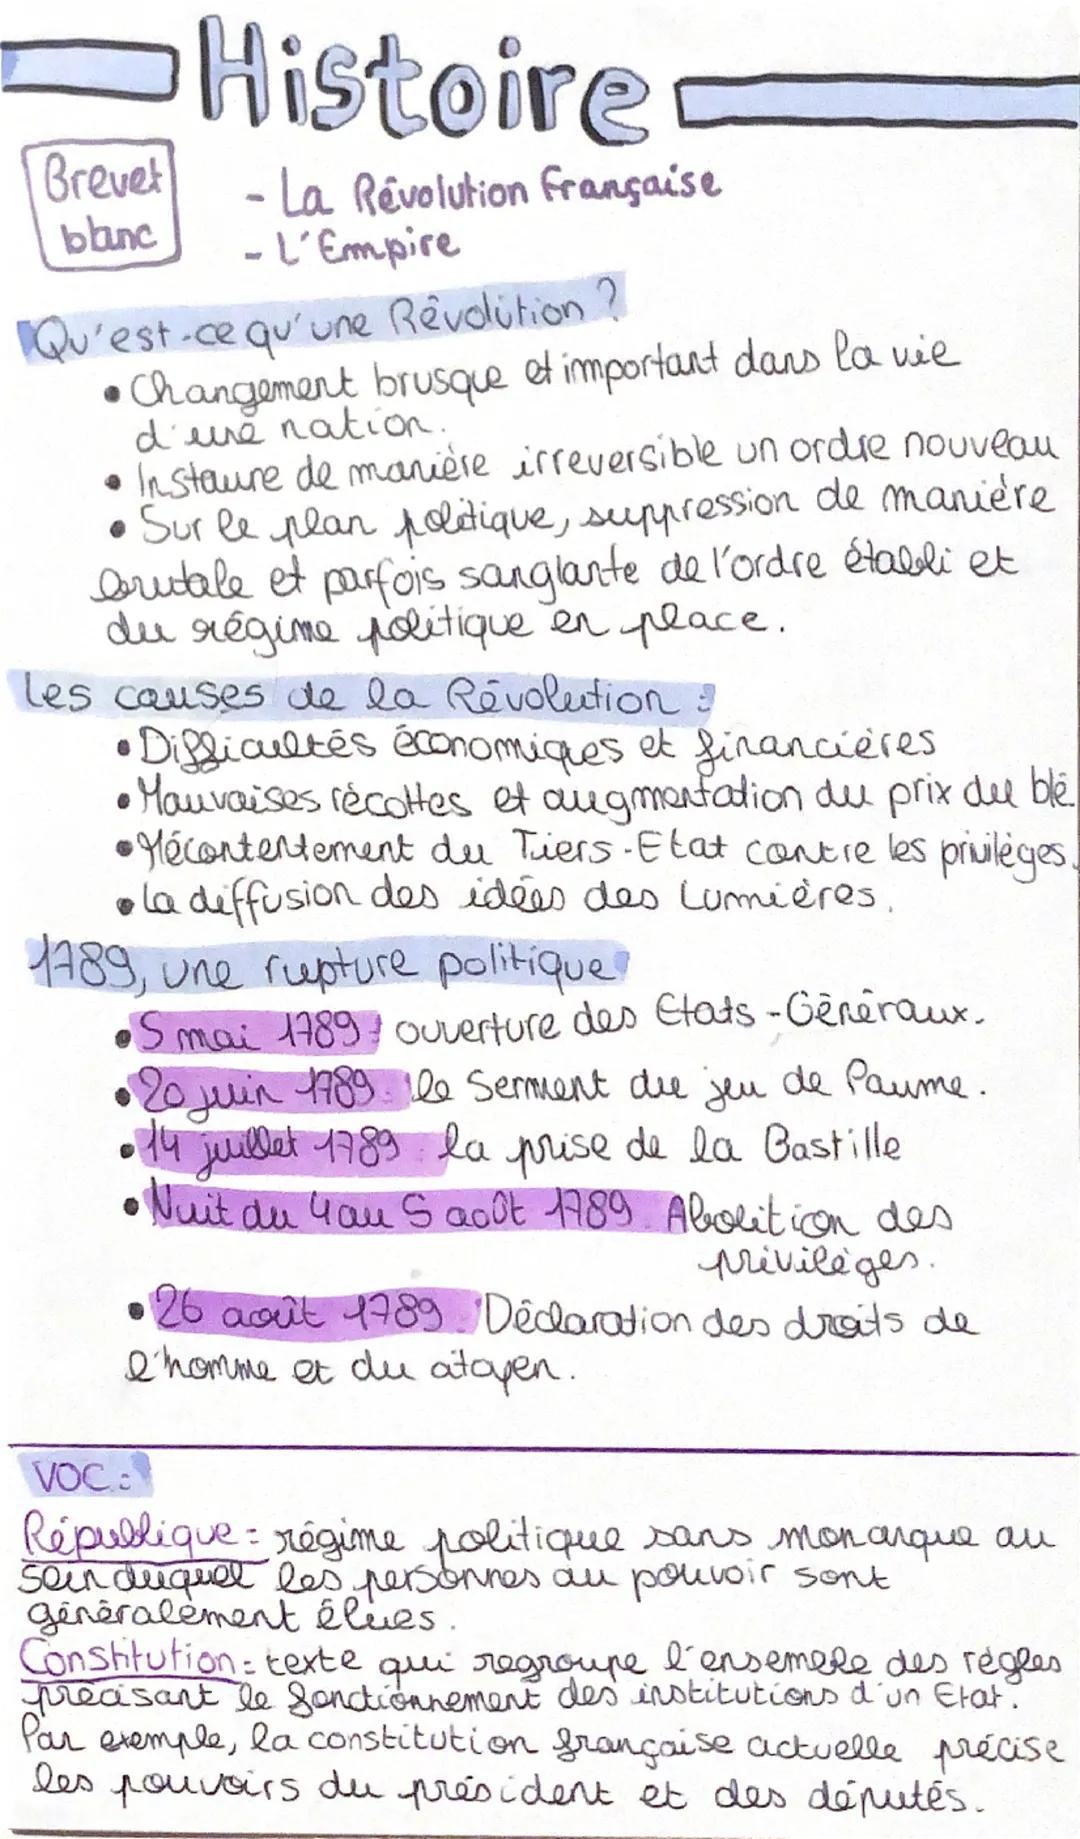 Histoire
Brevet
blanc
- La Révolution Française
- L'Empire
Qu'est-ce qu'une Révolution ?
• Changement brusque et important dans la vie
d'une nation.
• Instaure de manière irreversible un ordre nouveau
• Sur le plan politique, suppression de manière
brutale et parfois sanglante de l'ordre établi et
du régime politique en place.
Les causes de la Révolution :
• Difficultés économiques et financières
• Mauvaises récoltes et augmentation du prix du blé.
• Mécontentement du Tiers-Etat contre les privilèges.
• La diffusion des idées des Lumières.
1789, une rupture politique
• 5 mai 1789 : ouverture des Etats-Généraux.
• 20 juin 1789 : le Serment du jeu de Paume.
• 14 juillet 1789 : la prise de la Bastille
• Nuit du 4 au 5 août 1789 : Abolition des
privilèges.
• 26 août 1789 : Déclaration des droits de
l'homme et du citoyen.
VOC :
République = régime politique sans monarque au
sein duquel les personnes au pouvoir sont
généralement élues.
Constitution = texte qui regroupe l'ensemble des règles
précisant le fonctionnement des institutions d'un Etat.
Par exemple, la constitution française actuelle précise
les pouvoirs du président et des députés.